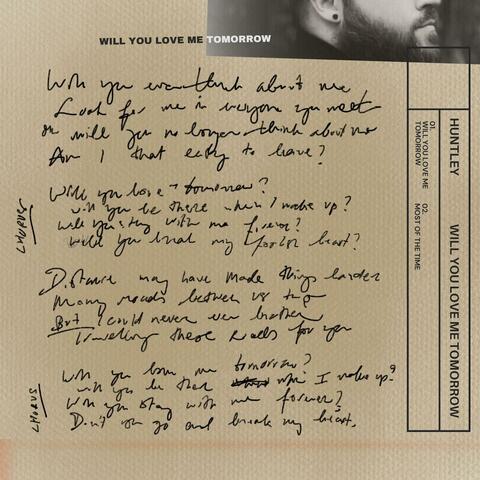 WILL YOU LOVE ME TOMORROW
Will you even think about me
Look for me in everyone you meet
or will you no longer think about me
Am I that easy to leave?
Will you love tomorrow?
will you be there when I wake up?
will you stay with me forever?
will you break my foolish heart?
CHORUS
Distance may have made things harder
Many roads between us two
But I could never ever bother
Travelling these roads for you
Will you love me tomorrow?
will you be there when I wake up?
Will you stay with me forever?
Don't you go and break my heart.
CHORUS
HUNTLEY WILL YOU LOVE ME TOMORROW
01. WILL YOU LOVE ME TOMORROW
02. MOST OF THE TIME